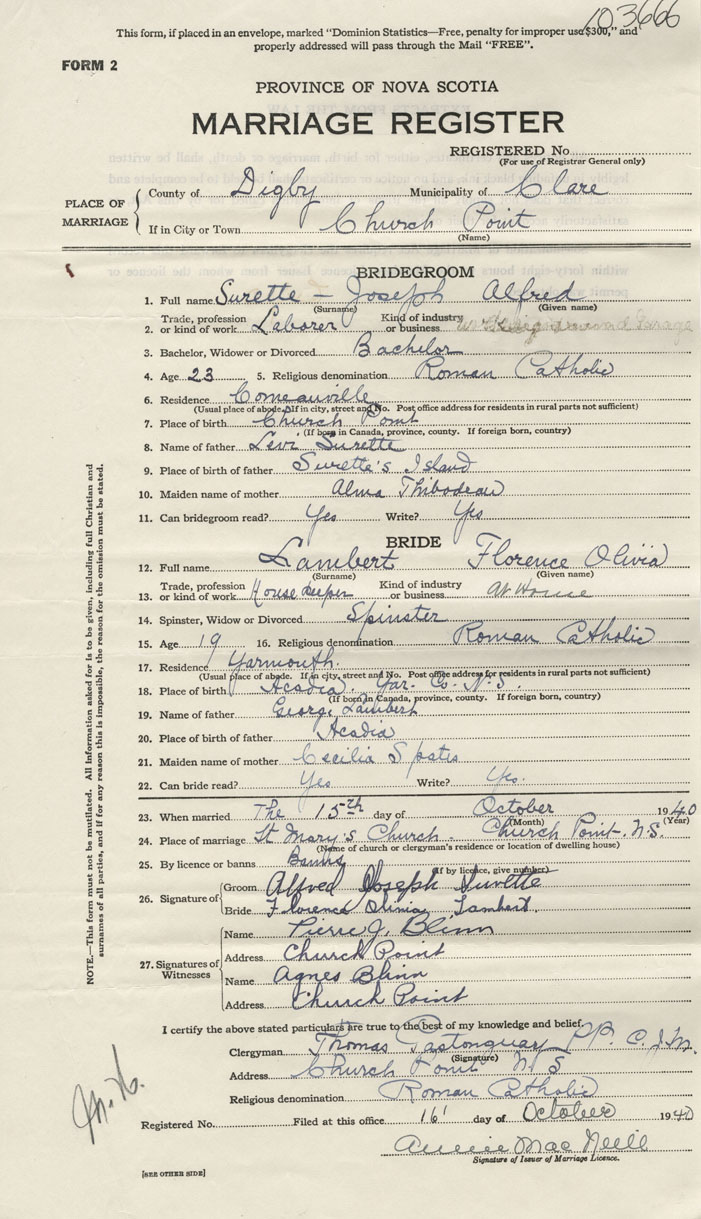 103666
This form, if placed in an envelope, marked "Dominion Statistics—Free, penalty for improper use $300," and
properly addressed will pass through the Mail "FREE".
FORM 2
PROVINCE OF NOVA SCOTIA
MARRIAGE REGISTER
REGISTERED No.
(For use of Registrar General only)
PLACE OF MARRIAGE
County of Digby Municipality of Clare
If in City or Town Church Point
(Name)
BRIDEGROOM
1. Full name Surette - Joseph Alfred
(Surname) (Given name)
2. Trade, profession or kind of work Laborer Kind of industry or business Garage
3. Bachelor, Widower or Divorced Bachelor
4. Age 23 5. Religious denomination Roman Catholic
6. Residence Comeauville
(Usual place of abode. If in city, street and No. Post office address for residents in rural parts not sufficient)
7. Place of birth Church Point
(If born in Canada, province, county. If foreign born, country)
8. Name of father Levi Surette
9. Place of birth of father Surette's Island
10. Maiden name of mother Alma Thibodeau
11. Can bridegroom read? Yes Write? Yes
BRIDE
12. Full name Lambert Florence Olivia
(Surname) (Given name)
13. Trade, profession or kind of work Housekeeper Kind of industry or business at House
14. Spinster, Widow or Divorced Spinster
15. Age 19 16. Religious denomination Roman Catholic
17. Residence Yarmouth.
(Usual place of abode. If in city, street and No. Post office address for residents in rural parts not sufficient)
18. Place of birth Acadia. Yar. Co. N.S.
(If born in Canada, province, county. If foreign born, country)
19. Name of father George Lambert
20. Place of birth of father Acadia
21. Maiden name of mother Cecilia
22. Can bride read? Yes Write? Yes.
23. When married The 15th day of October 1940
(Month) (Year)
24. Place of marriage St Mary's Church - Church Point. N.S.
(Name of church or clergyman's residence or location of dwelling house)
25. By licence or banns Banns
(If by licence, give number)
26. Signature of
Groom Alfred Joseph Surette
Bride Florence Olivia Lambert.
27. Signatures of Witnesses
Name Pierre J. Blinn
Address Church Point
Name Agnes Blinn
Address Church Point
I certify the above stated particulars are true to the best of my knowledge and belief.
Clergyman Thomas PP. C.J.M.
(Signature)
Address Church Point N S
Religious denomination Roman Catholic
Registered No. Filed at this office 16 day of October 1940
Annie MacNeill
Signature of Issuer of Marriage Licence.
[SEE OTHER SIDE]
NOTE.—This form must not be mutilated. All Information asked for is to be given, including full Christian and
surnames of all parties, and if for any reason this is impossible, the reason for the omission must be stated.